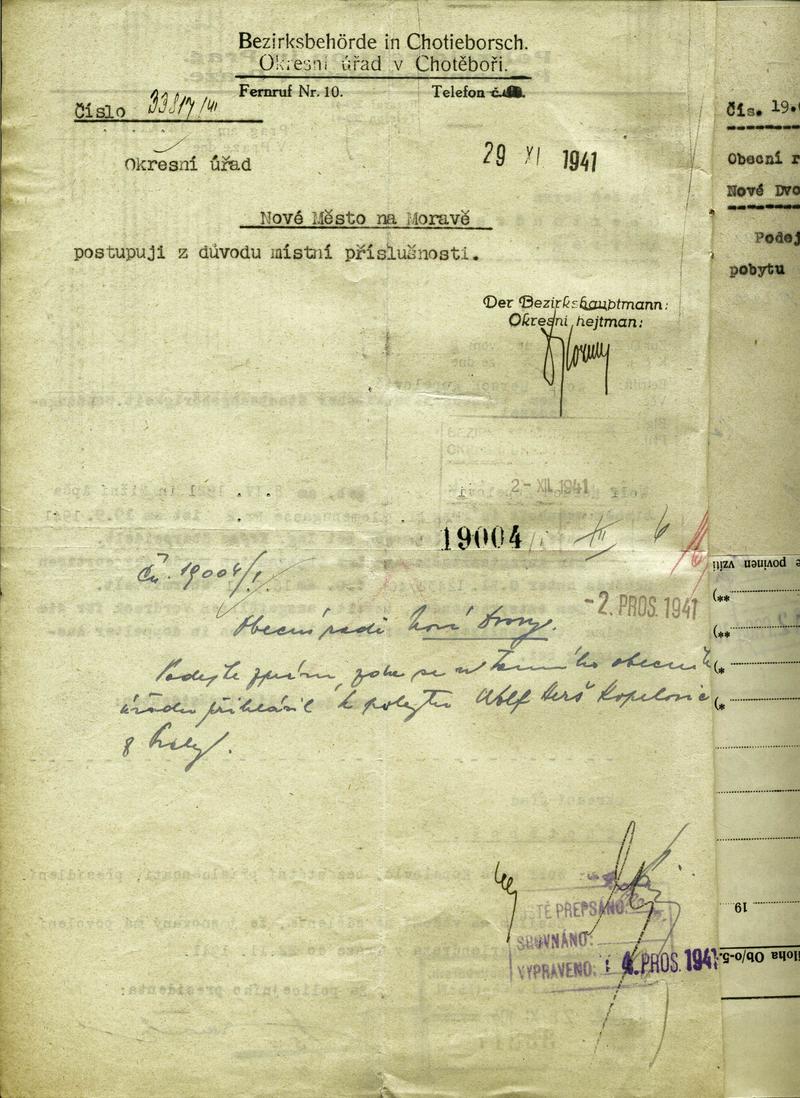 Bezirksbehörde in Chotieborsch.
Okresní úřad v Chotěboři.
Fernruf Nr. 10. Telefon
Číslo 33817/41
Okresní úřad
29 XI 1941
Nové Město na Moravě
postupuji z důvodu místní příslušnosti.
Der Bezirkshauptmann:
Okresní hejtman:
2-XII.1941
19004
Čís. 19004/I.
-2. PROS. 1941
Obecní radě Nové Dvory.
Podejte zprávu, zda se u tamního obecního
úřadu přihlásil k pobytu Wolf Herš Kopelovic
z Prahy.
ČISTĚ PŘEPSÁNO:
SROVNÁNO:
VYPRAVENO: 4. PROS. 1941
Čís. 19.
Obecní r
Nové Dvo
Podej
pobytu
e povinen vzíti
**)
**)
*)
*)
19
íloha Ob/o-5-